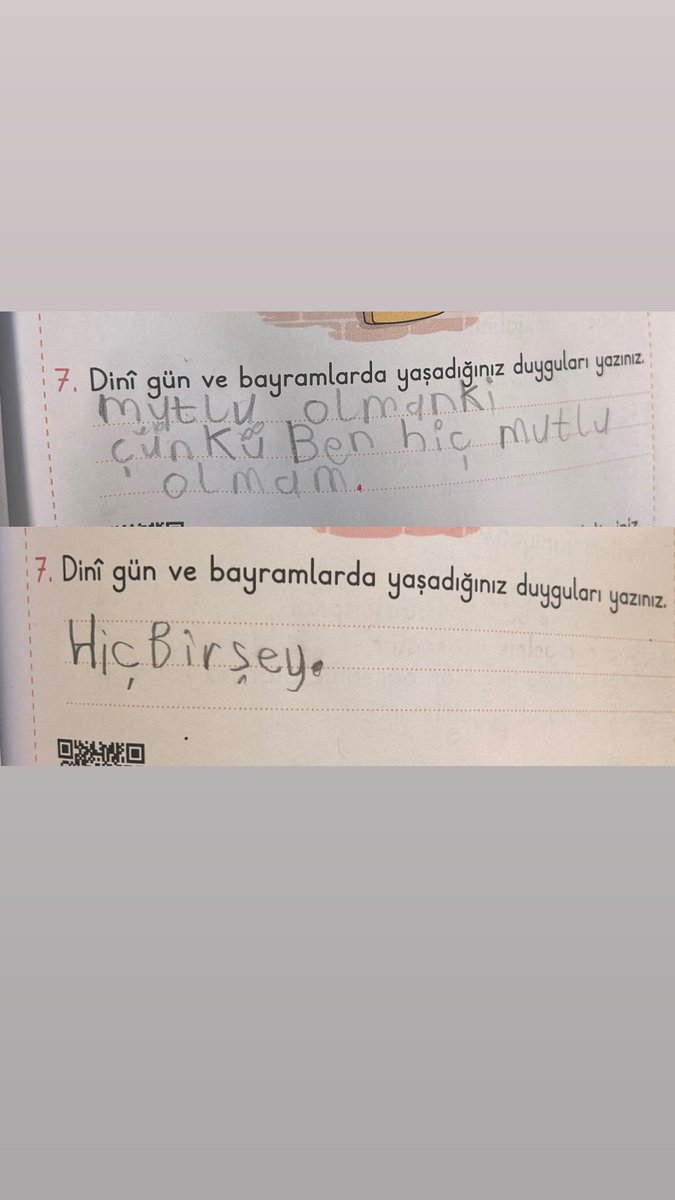 7. Dinî gün ve bayramlarda yaşadığınız duyguları yazınız.
mutlu olmanki
çünkü Ben hiç mutlu
olmam.
7. Dinî gün ve bayramlarda yaşadığınız duyguları yazınız.
HiçBirşey.